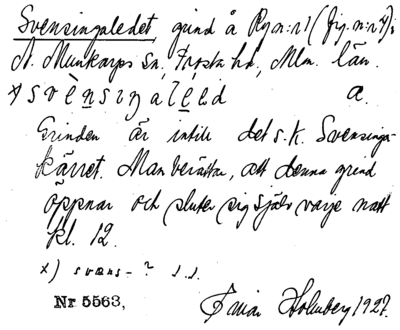 Svensingaledet grind å Rg n:r 1 (fig. n:r 4);
N. Munkarps sn, Frosta hd, Mlm. län.
x) svènsiŋaleed a.
Grinden är intill det s.k. Svensinga-
kärret. Man berättar, att denna grind
öppnar och sluter sig själv varje natt
kl. 12.
x) svæns- ? I.I.
Nr 5563,
Holmberg 1927.